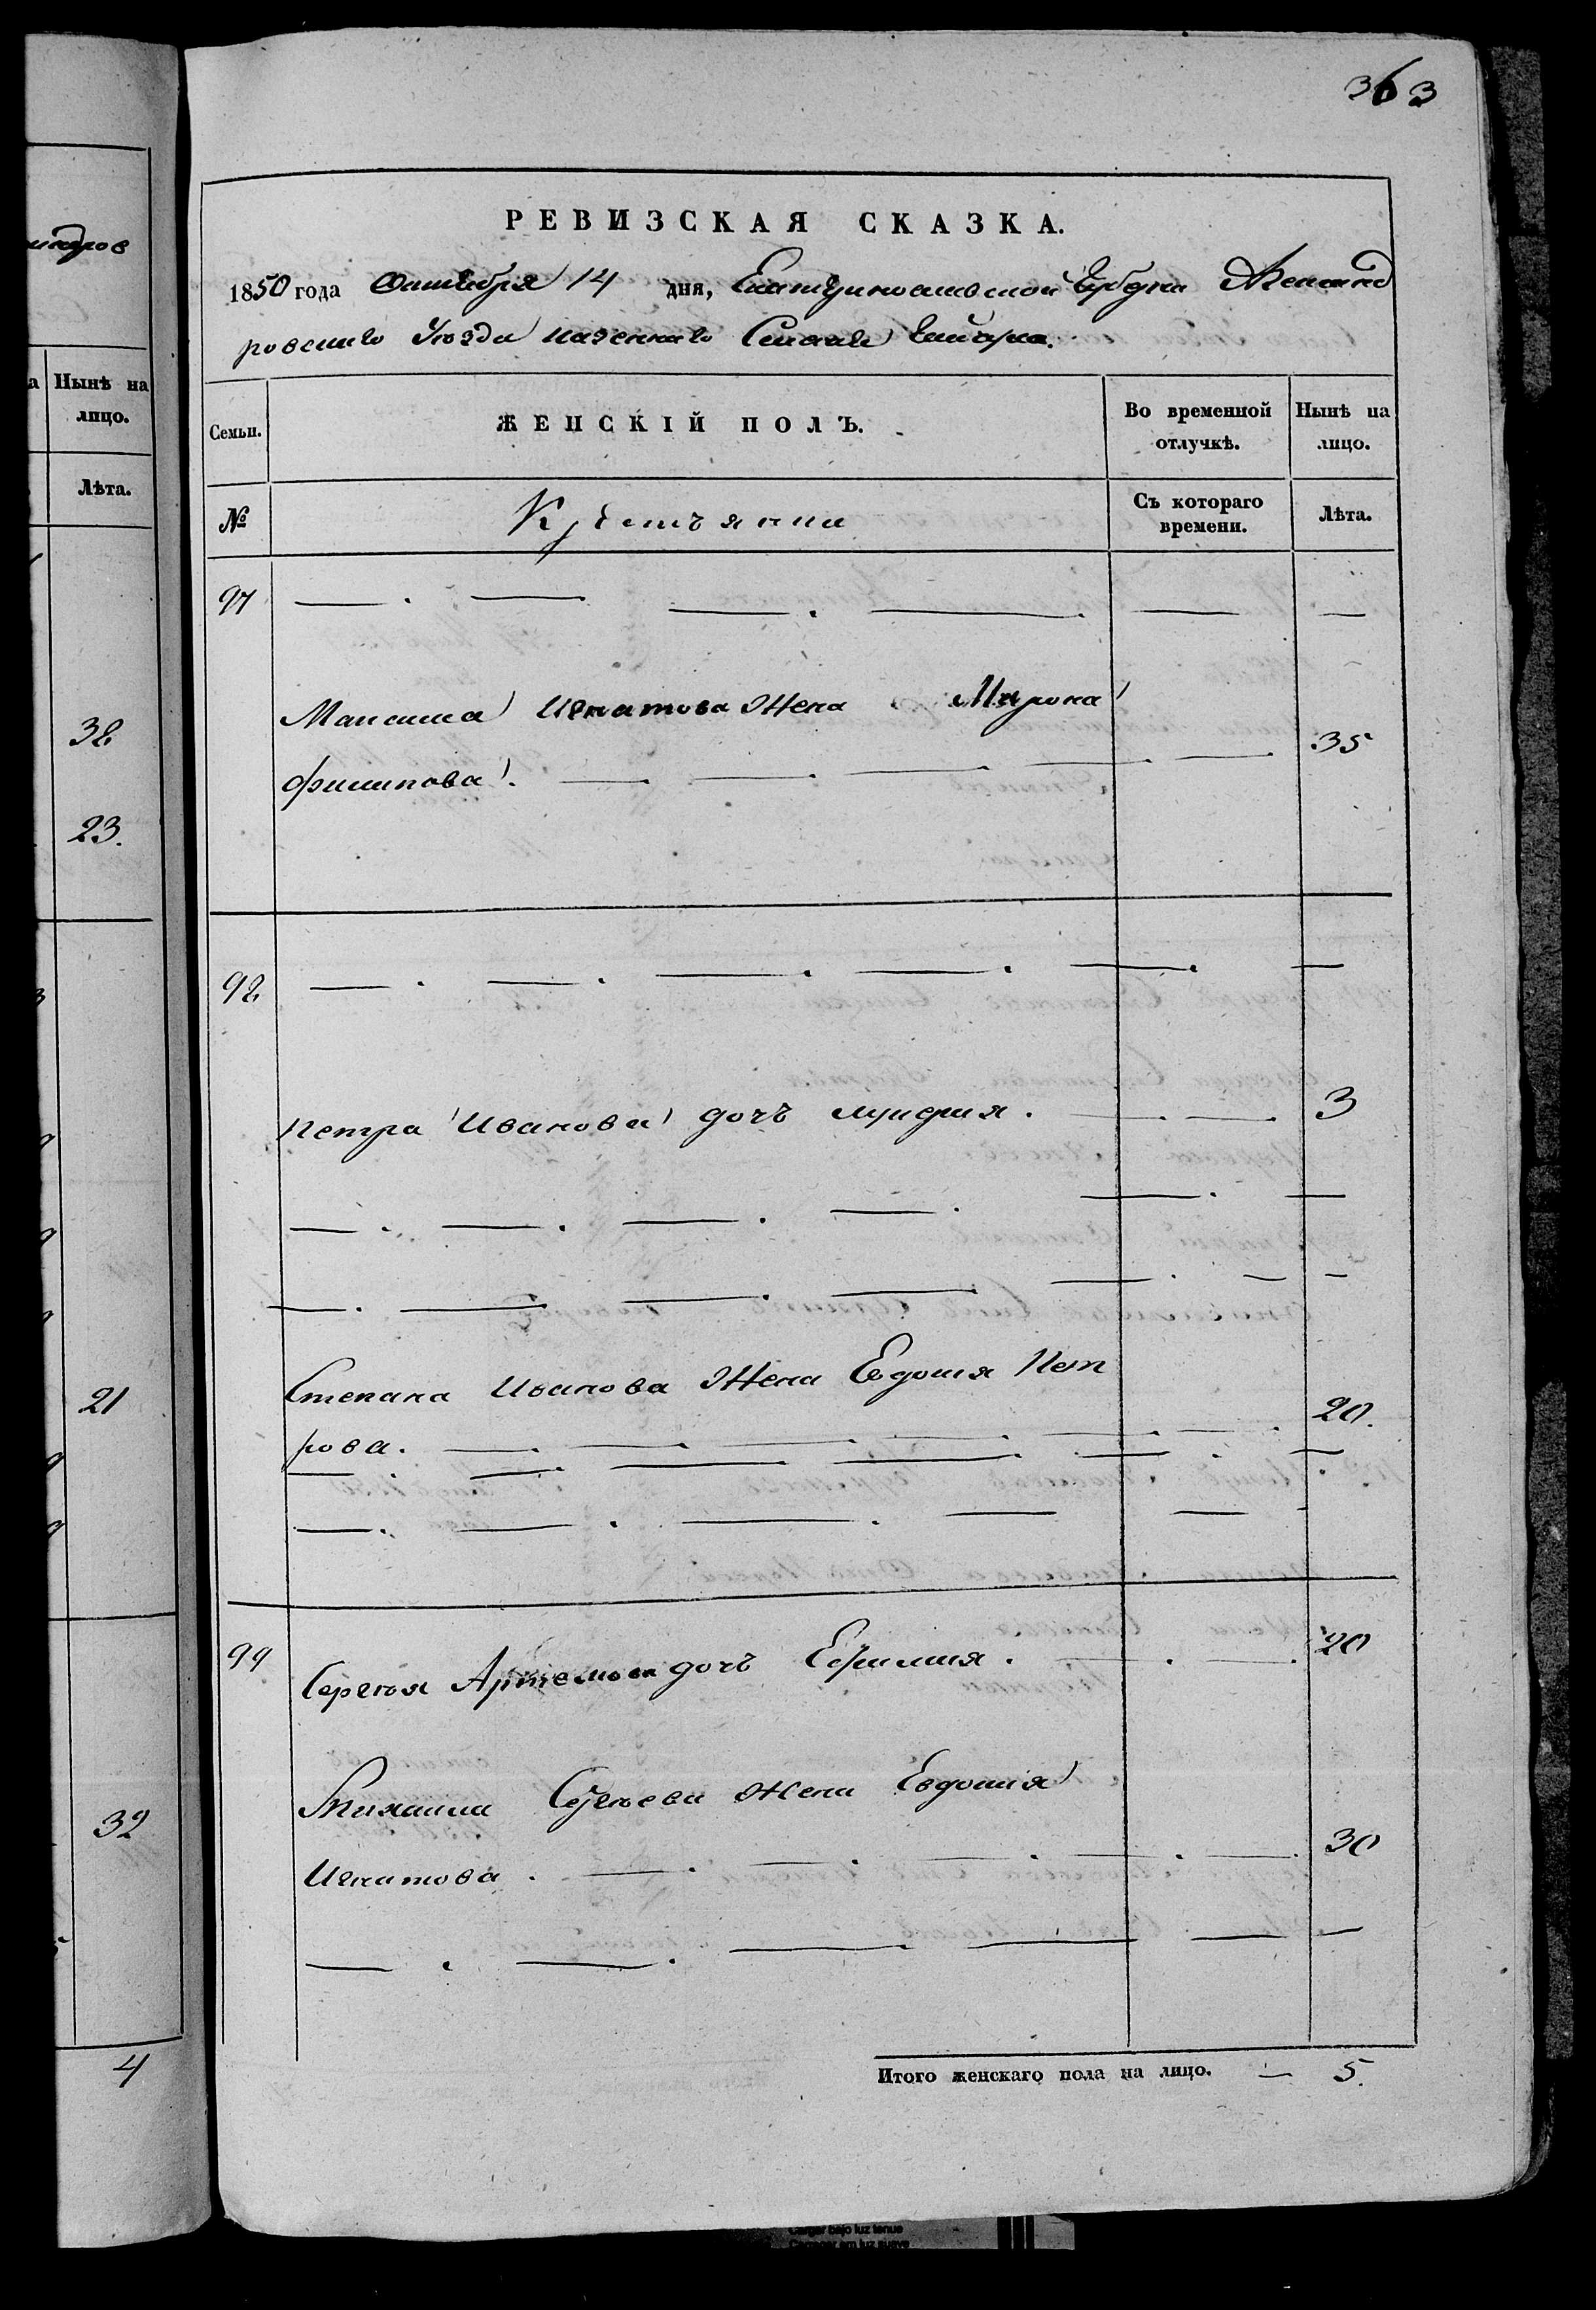 363
РЕВИЗСКАЯ СКАЗКА.
1850 года Октября 14 дня, Екатеринославской Губерніи Александ
ровскаго Уѣзда казеннаго Селенія
Семьи.
ЖЕНСКІЙ ПОЛЪ.
Во временной отлучкѣ.
Нынѣ на лицо.
№
Крестьянки
Съ котораго времени.
Лѣта.
97
Максима Игнатова Жена Мирона
филипова. 35
98
Петра Иванова дочь 3
Степана Иванова Жена Евдокия Пет
рова. 20.
99 Сергея Артемова дочь Ефимия. 20
Михаила Сергеева Жена Евдокия
Игнатова. 30
Итого женскаго пола на лицо. — 5.
Нынѣ на
лицо.
Лѣта.
38
23.
21
32
4